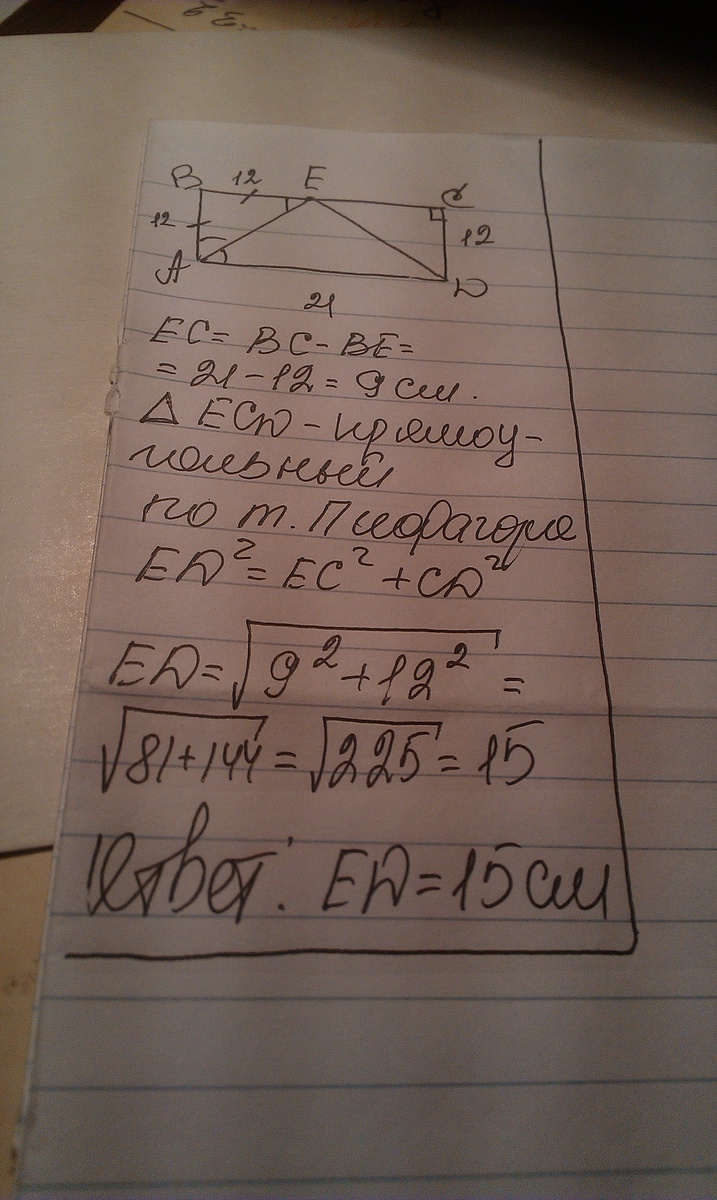 B 12 E C
12 12
A D
21
EC = BC - BE =
= 21 - 12 = 9 см.
Δ ECD - прямоу-
гольный
по т. Пифагора
ED² = EC² + CD²
ED = √9² + 12² =
√81 + 144 = √225 = 15
Ответ: ED = 15 см